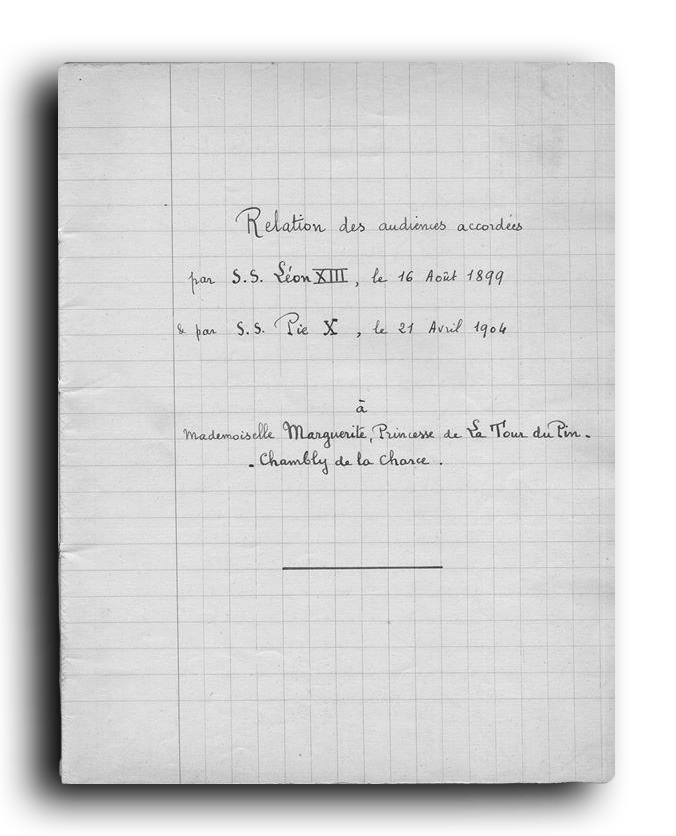 Relation des audiences accordées
par S.S. Léon XIII, le 16 Août 1899
& par S.S. Pie X, le 21 Avril 1904
à
Mademoiselle Marguerite, Princesse de La Tour du Pin -
- Chambly de la Charce.